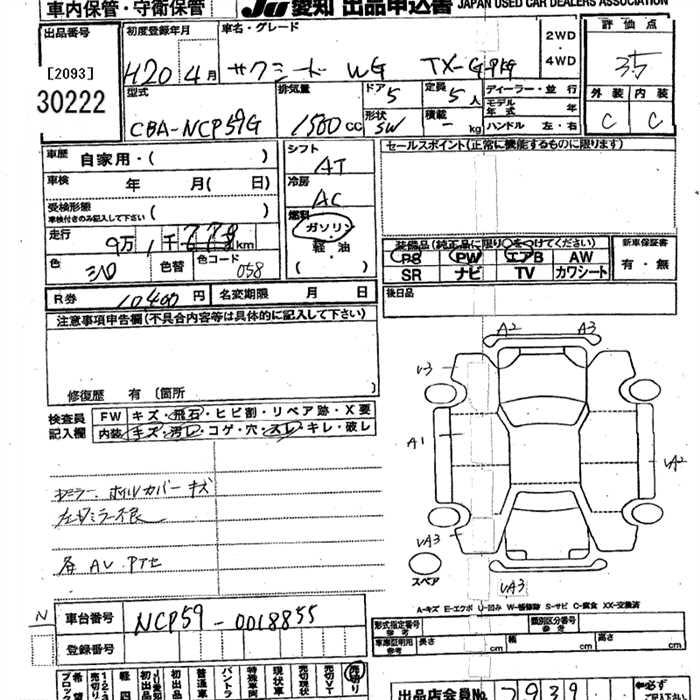 車内保管・守衛保管
JU愛知 出品申込書 JAPAN USED CAR DEALERS ASSOCIATION
出品番号 [2093] 30222
初度登録年月 H20年4月
車名・グレード サクシード WG TX-GPKG
2WD・4WD
評価点 3.5
外装 内装
C C
型式 CBA-NCP59G
排気量 1500cc
ドア 5 形状 SW
定員 5人 積載 - kg
ディーラー・並行
モデル年式 年
ハンドル 左・右
車歴 自家用・( )
車検 年 月( 日)
受検形態 車検付きのみ記入して下さい ( )
走行 9万1千 km
色 シロ 色替 色コード 058
シフト AT
冷房 AC
燃料 ガソリン・軽油 ( )
セールスポイント(正常に機能するものに限ります)
装備品(純正品に限り○をつけてください)
PS PW エアB AW
SR ナビ TV カワシート
新車保証書 有・無
R券 10400円 名変期限 月 日
後日品
注意事項申告欄(不具合内容等は具体的に記入して下さい)
修復歴 有 〔箇所
検査員記入欄
FW キズ・飛石・ヒビ割・リペア跡・X要
内装 キズ・汚レ・コゲ・穴・スレ・キレ・破レ
ホイルカバー キズ
左ミラー不良
AV
A2 A3
U3
A1
UA2
UA3
UA3
スペア
A-キズ E-エクボ U-凹み W-補修跡 S-サビ C-腐食 XX-交換済
N
車台番号 NCP59-0018855
登録番号
形式指定番号 参考 類別区分番号 参考
車庫証明用 参考 長さ cm 幅 cm 高さ cm
売切り 1・2・3
軽四
初出品
JU愛知初出品
普通車
バントラ
特殊車両
現状車
売切現状
売切VT
売切り
出品店会員No. 7939 必ずご記入下さい